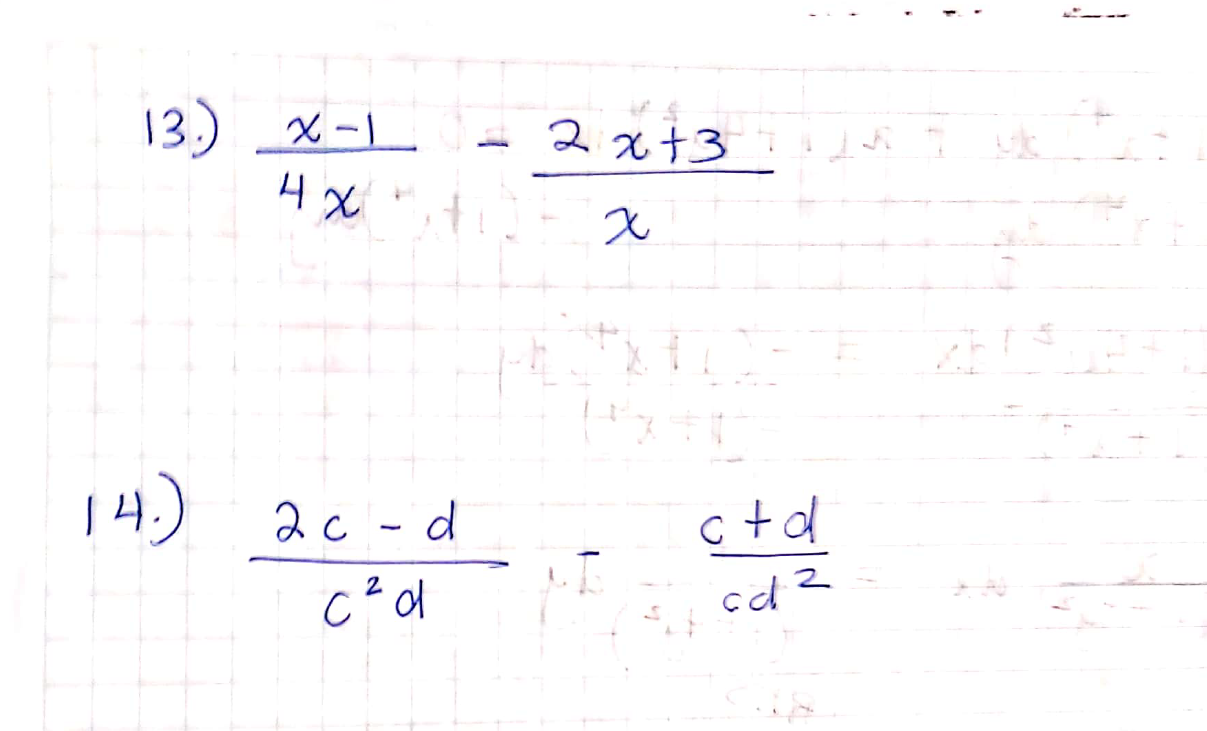 13.) x-1 / 4x - 2x+3 / x
14.) 2c - d / c²d - c+d / cd²